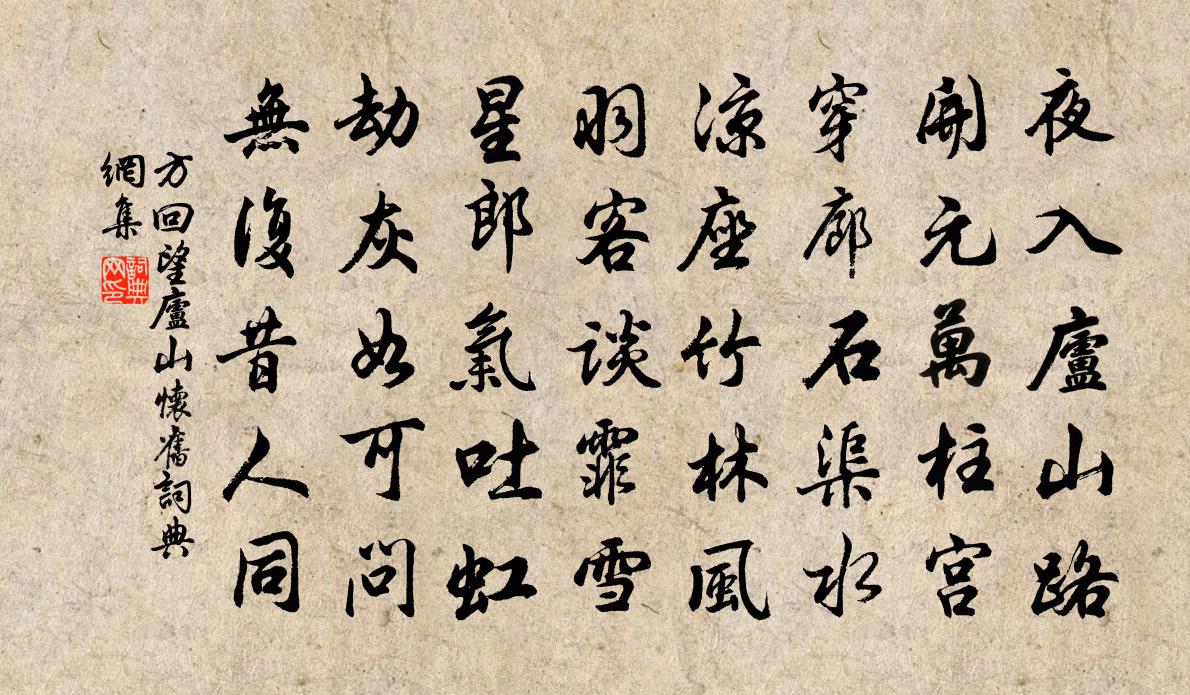 夜入廬山路
開元萬柱宮
穿廊石渠水
涼座竹林風
羽客談霏雪
星郎氣吐虹
劫灰如可問
無復昔人同
方回望廬山懷舊詞典
網集
詞典
网印